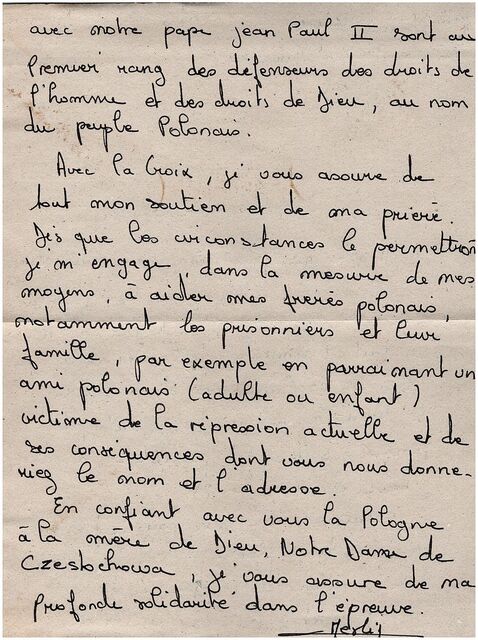 avec notre pape jean Paul II sont au
Premier rang des défenseurs des droits de
l'homme et des droits de Dieu, au nom
du peuple Polonais.
Avec la Croix, je vous assure de
tout mon soutien et de ma prière.
Dès que les circonstances le permettront
je m'engage, dans la mesure de mes
moyens, à aider mes frères polonais,
notamment les prisonniers et leur
famille, par exemple en parrainant un
ami polonais (adulte ou enfant)
victime de la répression actuelle et de
ses conséquences dont vous nous donne-
riez le nom et l'adresse.
En confiant avec vous la Pologne
à la mère de Dieu, Notre Dame de
Czestochowa, je vous assure de ma
profonde solidarité dans l'épreuve.